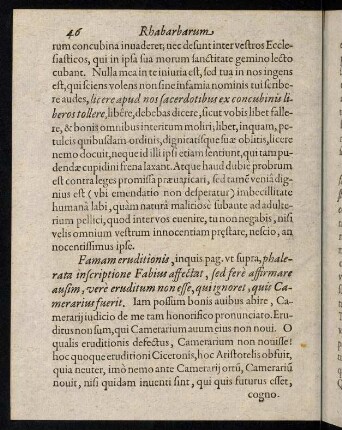 46 Rhabarbarum
rum concubina inuaderet; nec desunt inter vestros Eccle-
siasticos, qui in ipsa sua morum sanctitate gemino lecto
cubant. Nulla mea in te iniuria est, sed tua in nos ingens
est, qui sciens volens non sine infamia nominis tui scribe-
re audes, licere apud nos sacerdotibus ex concubinis li-
beros tollere, libere, debebas dicere, sicut vobis libet falle-
re, & bonis omnibus interitum moliri; libet, inquam, pe-
tulcis quibusdam ordinis, dignitatisque suæ oblitis, licere
nemo docuit, neque id illi ipsi etiam sentiunt, qui tam pu-
dendæ cupidini frena laxant. Atque haud dubie probrum
est contra leges promissa præuaricari, sed tamẽ venia dig-
nius est (vbi emendatio non desperatur) imbecillitate
humanâ labi, quàm naturâ malitiosè subante ad adulte-
rium pellici, quod inter vos euenire, tu non negabis, nisi
velis omnium vestrum innocentiam præstare, nescio, an
nocentissimus ipse.
Famam eruditionis, inquis pag. vt supra, phale-
rata inscriptione Fabius affectat, sed ferè affirmare
ausim, verè eruditum non esse, qui ignoret, quis Ca-
merarius fuerit. Iam possum bonis auibus abire, Ca-
merarij iudicio de me tam honorifico pronunciato. Eru-
ditus non sum, qui Camerarium auum eius non noui. O
qualis eruditionis defectus, Camerarium non nouisse!
hoc quoque eruditioni Ciceronis, hoc Aristotelis obfuit,
quia neuter, imò nemo ante Camerarij ortũ, Camerariũ
nouit, nisi quidam inuenti sint, qui quis futurus esset,
cogno-